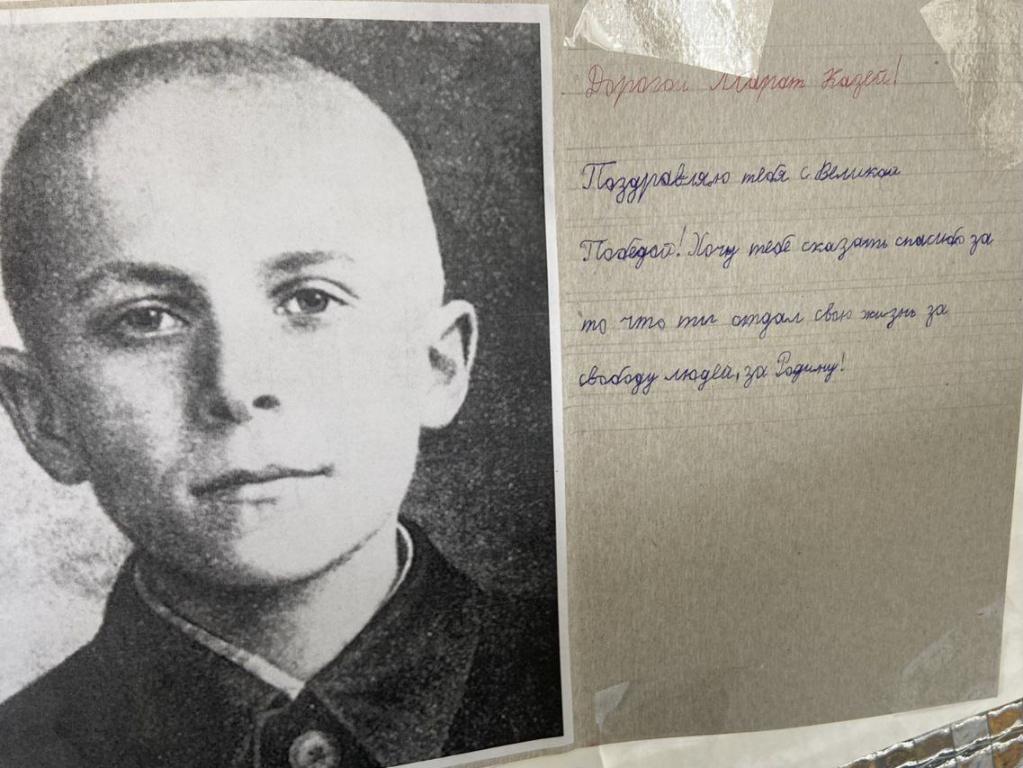 Дорогой Марат Казей!
Поздравляю тебя с Великой
Победой! Хочу тебе сказать спасибо за
то что ты отдал свою жизнь за
свободу людей, за Родину!